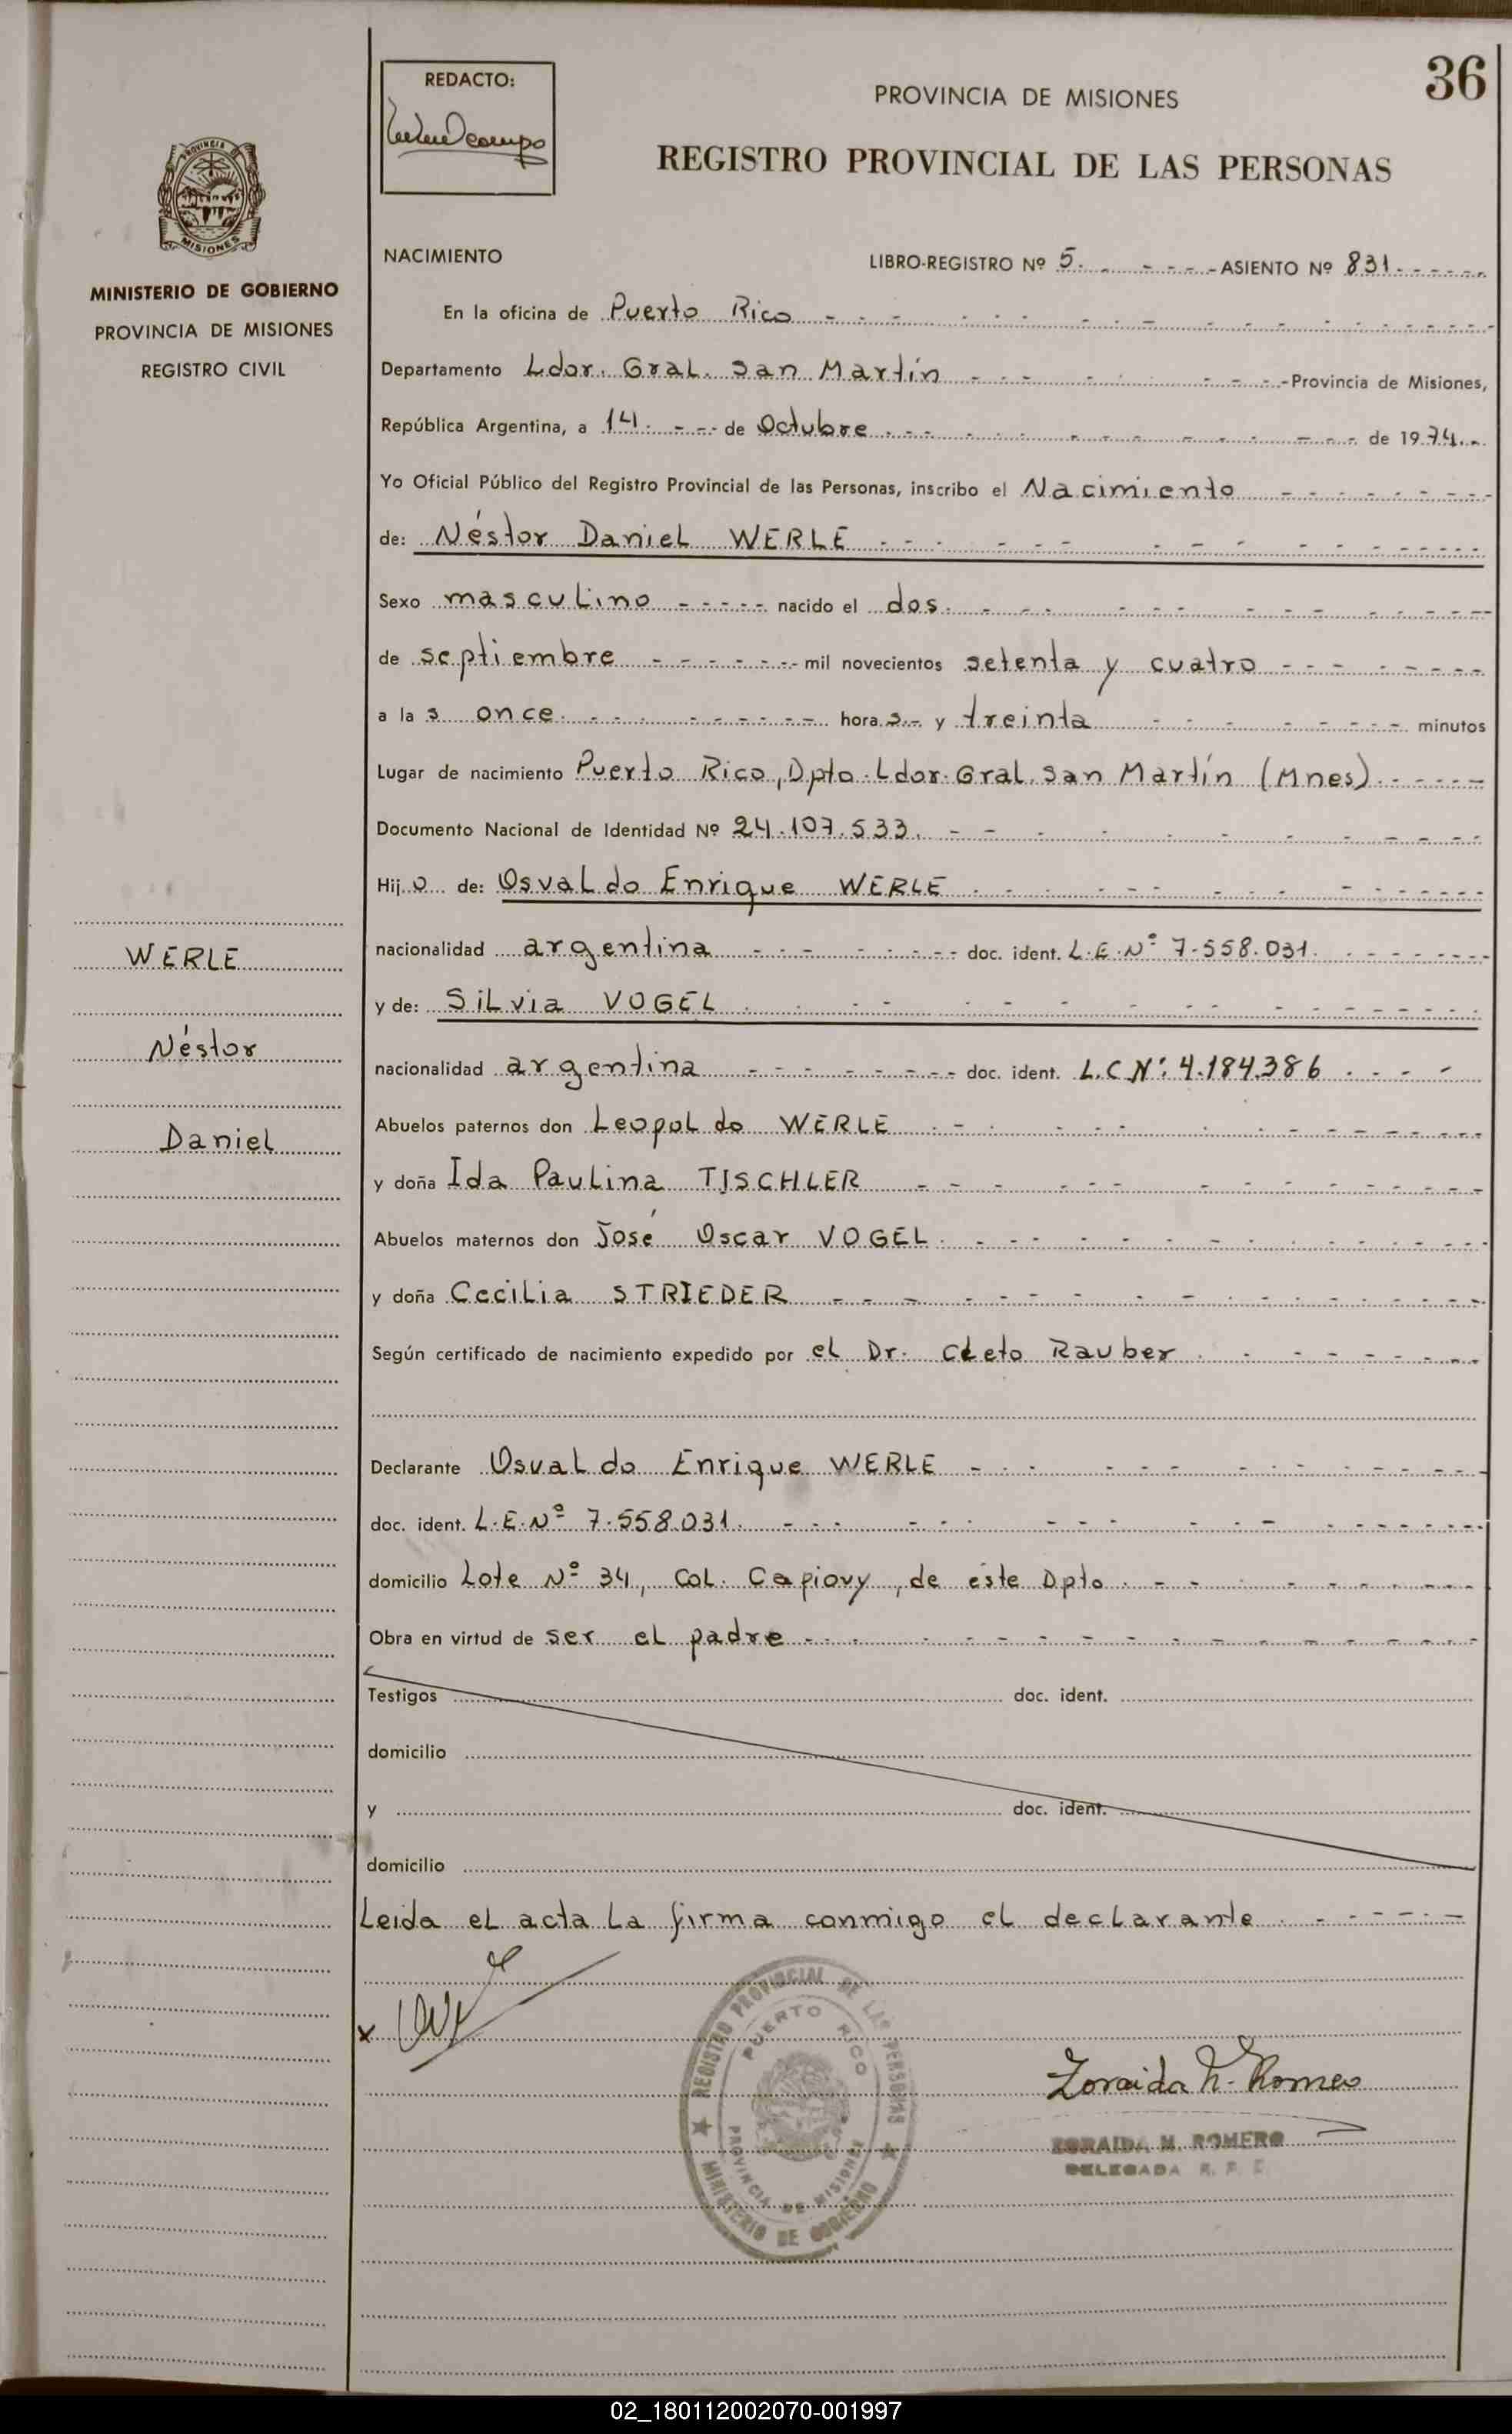 36
REDACTO:
PROVINCIA DE MISIONES
REGISTRO PROVINCIAL DE LAS PERSONAS
PROVINCIA DE
MISIONES
MINISTERIO DE GOBIERNO
PROVINCIA DE MISIONES
REGISTRO CIVIL
NACIMIENTO
LIBRO-REGISTRO Nº 5. ASIENTO Nº 831
En la oficina de Puerto Rico
Departamento Ldor. Gral. San Martín Provincia de Misiones,
República Argentina, a 14 de Octubre de 1974
Yo Oficial Público del Registro Provincial de las Personas, inscribo el Nacimiento
de: Néstor Daniel WERLE
Sexo masculino nacido el dos
de septiembre mil novecientos setenta y cuatro
a la s once horas y treinta minutos
Lugar de nacimiento Puerto Rico, Dpto. Ldor. Gral. San Martín (Mnes)
Documento Nacional de Identidad Nº 24.107.533.
Hijo de: Osvaldo Enrique WERLE
nacionalidad argentina doc. ident. L.E.Nº 7.558.031.
y de: Silvia VOGEL
nacionalidad argentina doc. ident. L.C.Nº: 4.184.386
Abuelos paternos don Leopoldo WERLE
y doña Ida Paulina TISCHLER
Abuelos maternos don José Oscar VOGEL
y doña Cecilia STRIEDER
Según certificado de nacimiento expedido por el Dr. Cleto Rauber
Declarante Osvaldo Enrique WERLE
doc. ident. L.E.Nº 7.558.031.
domicilio Lote Nº 34, Col. Capiovy, de éste Dpto.
Obra en virtud de ser el padre
Testigos doc. ident.
domicilio
y doc. ident.
domicilio
Leida el acta la firma conmigo el declarante
WERLE
Néstor
Daniel
x
REGISTRO PROVINCIAL DE LAS PERSONAS
PUERTO RICO
PROVINCIA DE MISIONES
MINISTERIO DE GOBIERNO
Zoraida M. Romero
ZORAIDA M. ROMERO
DELEGADA R. P. P.
02_180112002070-001997